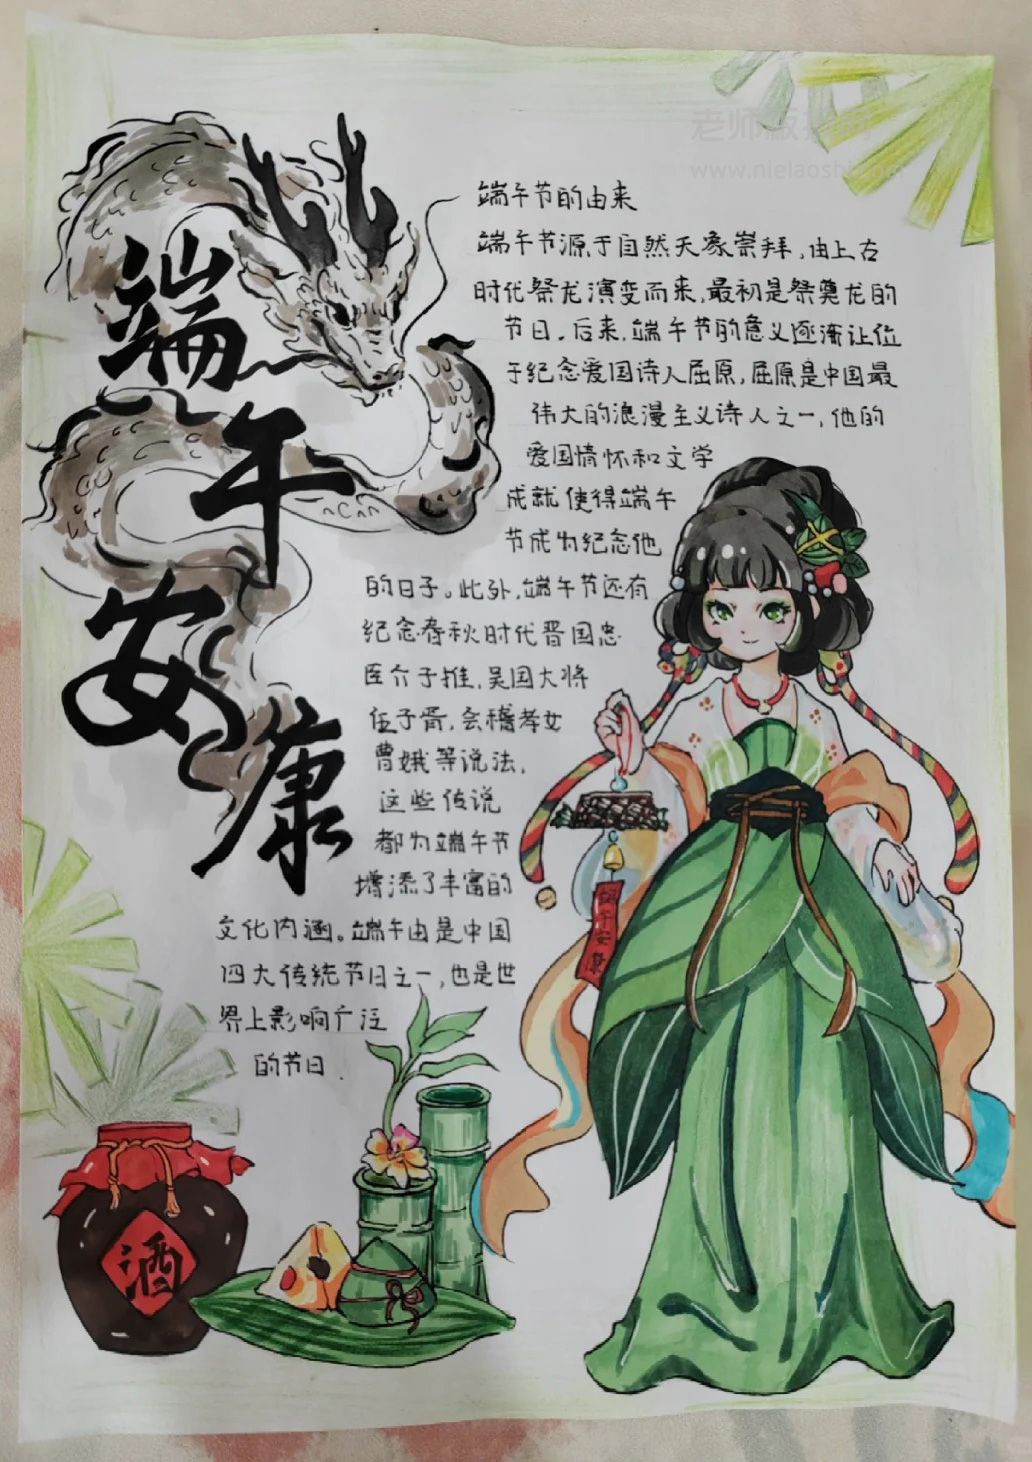 端午安康
端午节的由来
端午节源于自然天象崇拜,由上古
时代祭龙演变而来,最初是祭奠龙的
节日。后来,端午节的意义逐渐让位
于纪念爱国诗人屈原,屈原是中国最
伟大的浪漫主义诗人之一,他的
爱国情怀和文学
成就使得端午
节成为纪念他
的日子。此外,端午节还有
纪念春秋时代晋国忠
臣介子推,吴国大将
伍子胥,会稽孝女
曹娥等说法,
这些传说
都为端午节
增添了丰富的
文化内涵。端午由是中国
四大传统节日之一,也是世
界上影响广泛
的节日.
端午安康
酒
www.nielaoshi.com